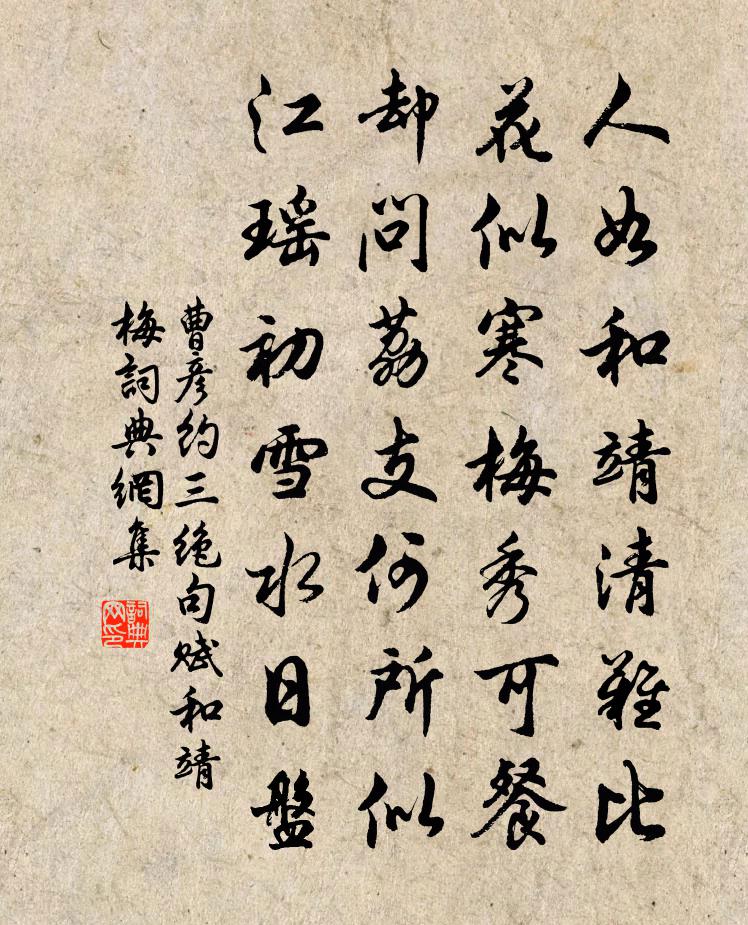 人如和靖清難比
花似寒梅秀可餐
却問荔支何所似
江瑤初雪水日盤
曹彦約三絶句賦和靖
梅詞典網集
詞典
网印